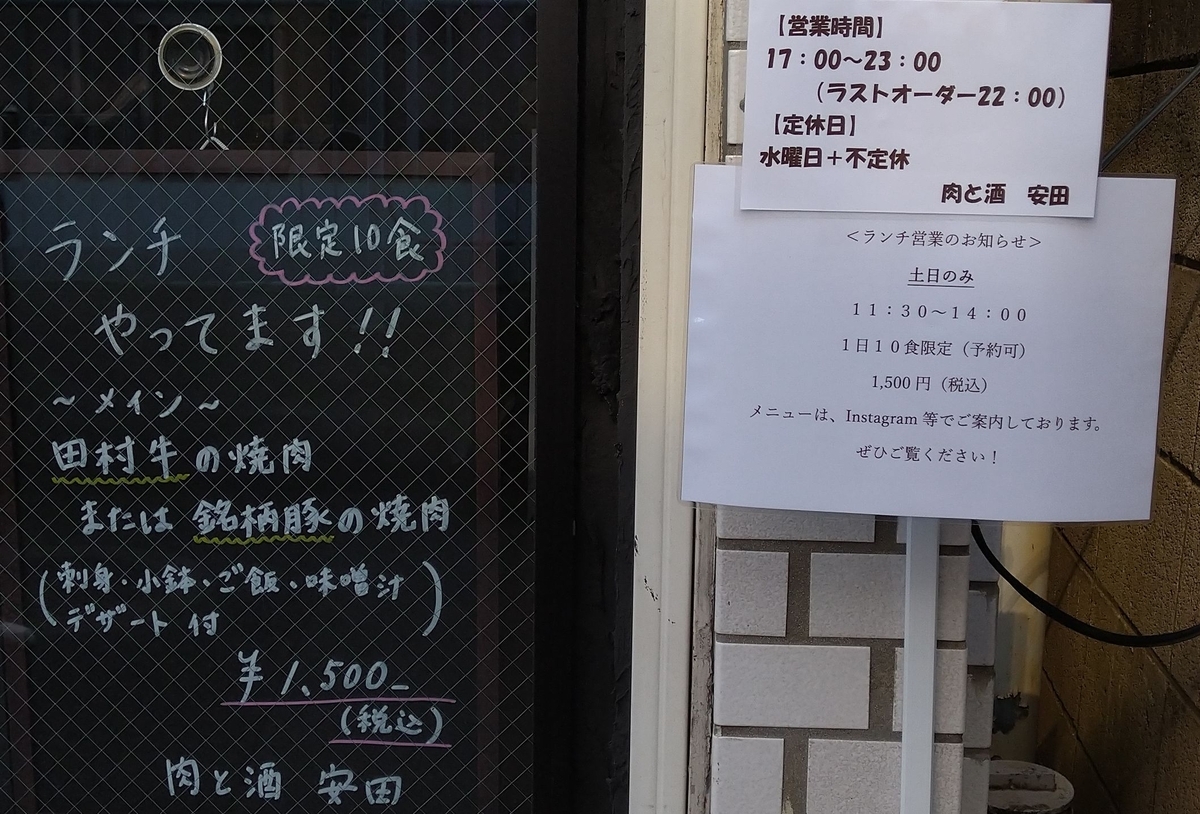 ランチ 限定10食
やってます!!
～メイン～
田村牛の焼肉
または銘柄豚の焼肉
(刺身・小鉢・ご飯・味噌汁
デザート付)
¥1,500-
(税込)
肉と酒 安田
【営業時間】
17：00～23：00
（ラストオーダー22：00）
【定休日】
水曜日＋不定休
肉と酒 安田
＜ランチ営業のお知らせ＞
土日のみ
１１：３０～１４：００
１日１０食限定（予約可）
1,500 円（税込）
メニューは、Instagram 等でご案内しております。
ぜひご覧ください！